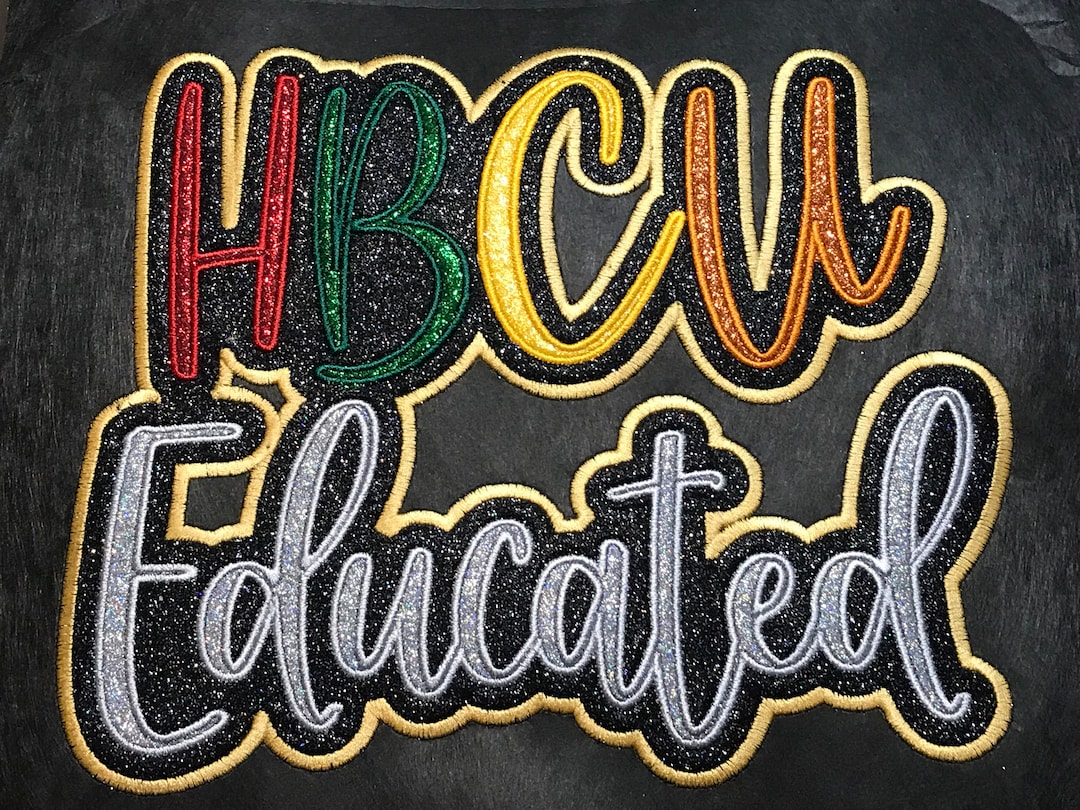 HBCU
Educated